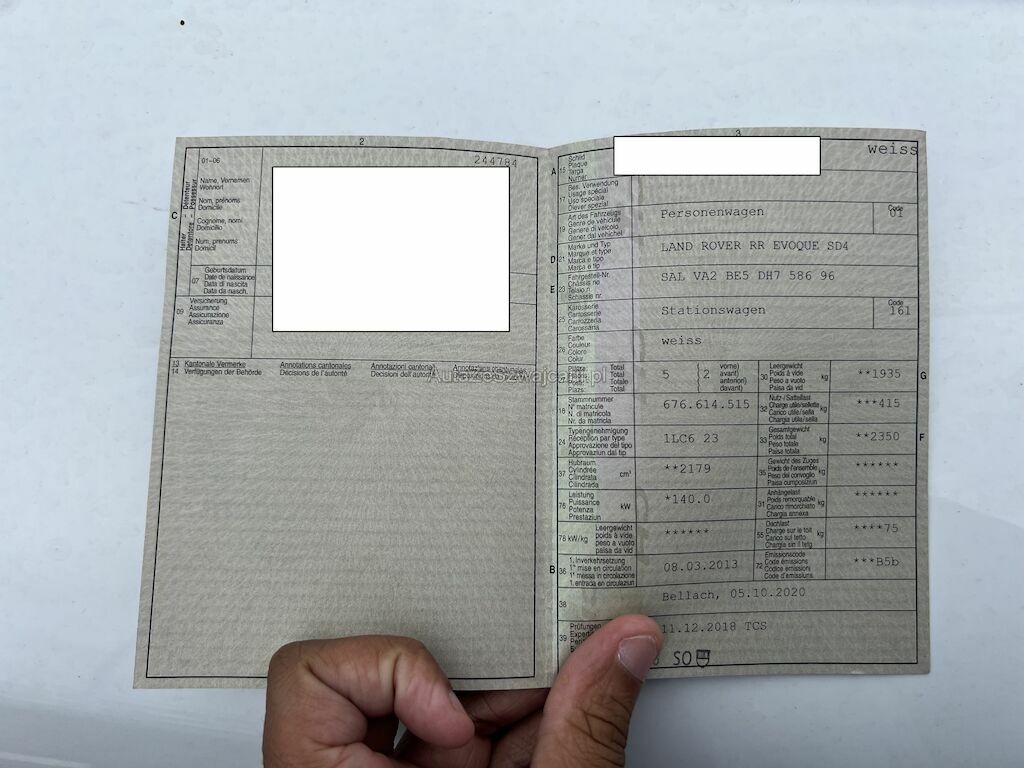 2
01-06
244784
C
Halter
Détenteur
Detentore
Possessur
Name, Vornamen
Wohnort
Nom, prénoms
Domicile
Cognome, nomi
Domicilio
Num, prenums
Domicil
07
Geburtsdatum
Date de naissance
Data di nascita
Data da nasch.
09
Versicherung
Assurance
Assicurazione
Assicuranza
13 Kantonale Vermerke Annotations cantonales Annotazioni cantonali Annotaziuns chantunalas
14 Verfügungen der Behörde Décisions de l'autorité Decisioni dell'autorità
AutazeSzwajcarii.pl
3
A 15
Schild
Plaque
Targa
Numer
weiss
17
Bes. Verwendung
Usage spécial
Uso speciale
Diever spezial
19
Art des Fahrzeugs
Genre de véhicule
Genere di veicolo
Gener dal vehichel
Personenwagen
Code
01
D 21
Marke und Typ
Marque et type
Marca e tipo
Marca e tip
LAND ROVER RR EVOQUE SD4
E 23
Fahrgestell-Nr.
Châssis no
Telaio n.
Schassis nr.
SAL VA2 BE5 DH7 586 96
25
Karosserie
Carrosserie
Carrozzeria
Carossaria
Stationswagen
Code
161
26
Farbe
Couleur
Colore
Colur
weiss
Plätze:
Plazs:
Total
Total
Totale
Total
5 2
vorne)
avant)
anteriori)
davant)
30
Leergewicht
Poids à vide
Peso a vuoto
Paisa da vid
kg
**1935
G
18
Stammnummer
N° matricule
N. di matricola
Nr. da matricla
676.614.515
32
Nutz-/ Sattellast
Charge utile/sellette
Carico utile/sella
Chargia utila/sella
kg
***415
24
Typengenehmigung
Réception par type
Approvazione del tipo
Approvaziun dal tip
1LC6 23
33
Gesamtgewicht
Poids total
Peso totale
Paisa totala
kg
**2350
F
37
Hubraum
Cylindrée
Cilindrata
Cilindrada
cm³
**2179
35
Gewicht des Zuges
Poids de l'ensemble
Peso del convoglio
Paisa cumposiziun
kg
******
76
Leistung
Puissance
Potenza
Prestaziun
kW
*140.0
31
Anhängelast
Poids remorquable
Carico rimorchiato
Chargia annexa
kg
******
78 kW/kg
Leergewicht
poids à vide
peso a vuoto
paisa da vid
******
55
Dachlast
Charge sur le toit
Carico sul tetto
Chargia sin il tetg
kg
****75
B 36
1. Inverkehrsetzung
1re mise en circulation
1a messa in circolazione
1. entrada en circulaziun
08.03.2013
72
Emissionscode
Code émissions
Codice emissioni
Code d'emissiuns
***B5b
38
Bellach, 05.10.2020
39
Prüfungen
11.12.2018 TCS
SO